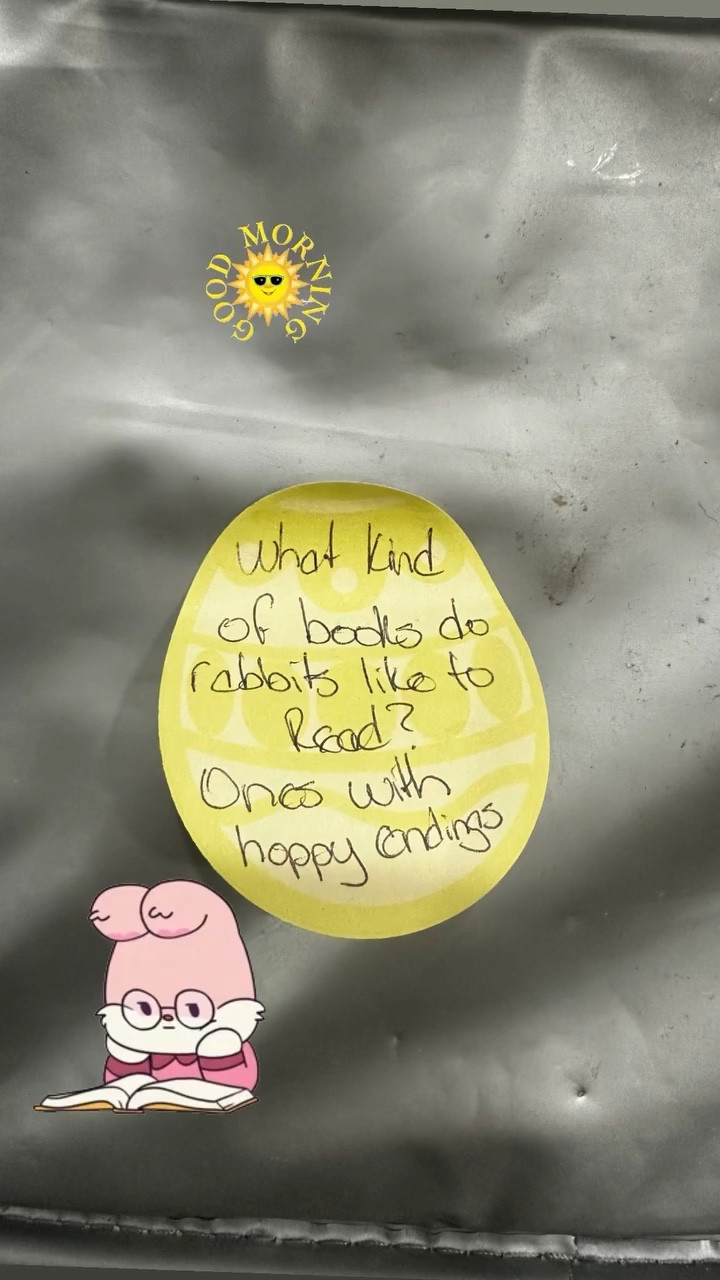 GOOD MORNING
What kind
of books do
rabbits like to
Read?
Ones with
hoppy endings